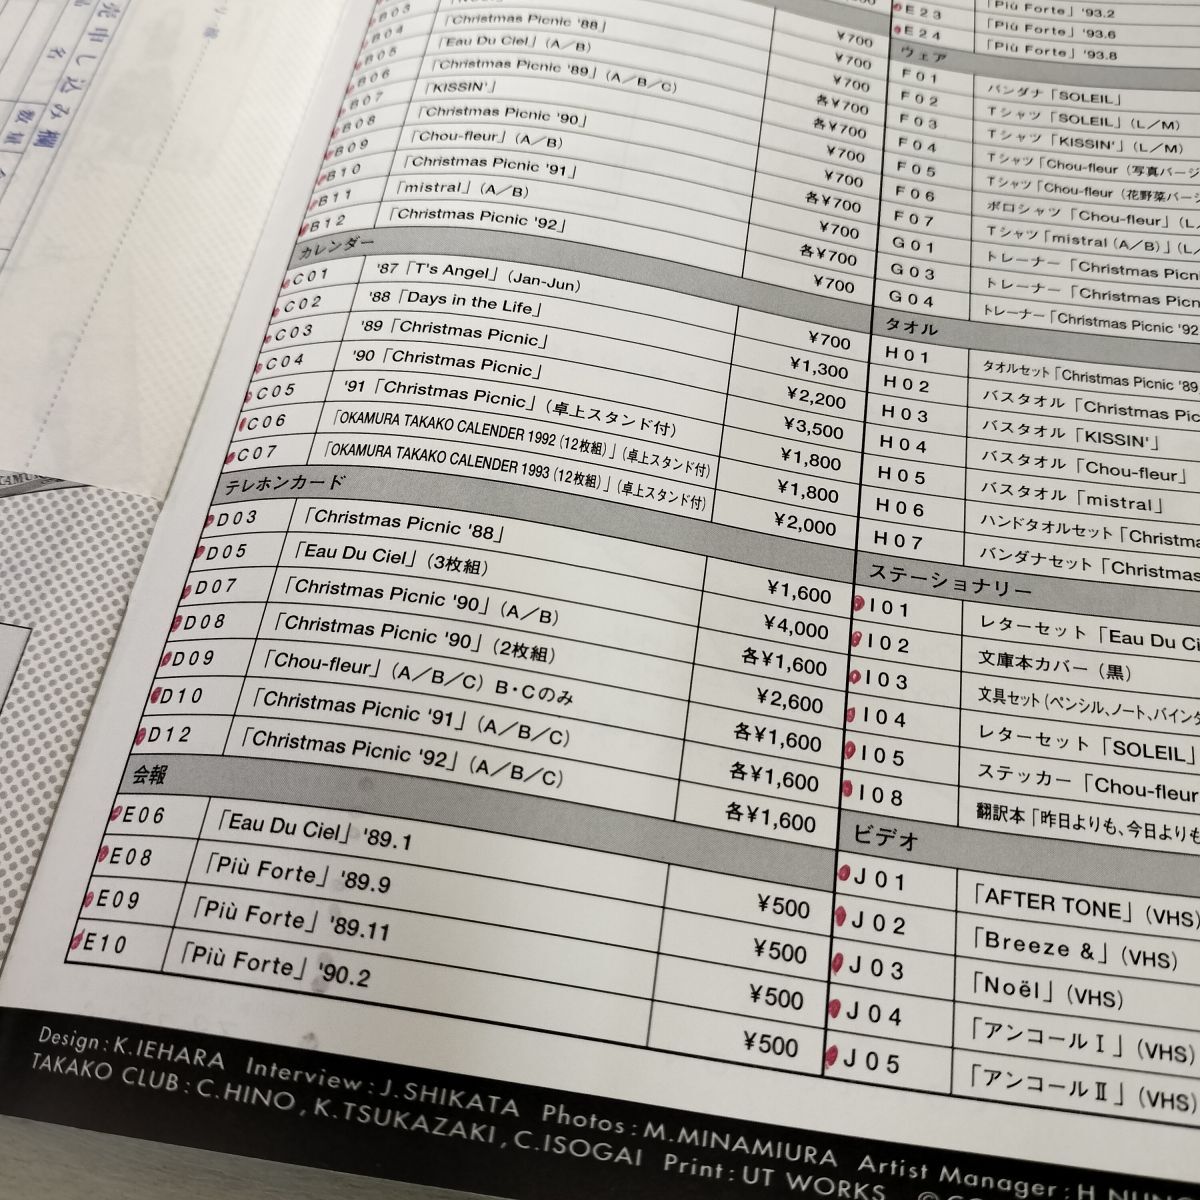 売申し込み欄
名
数量
B03
B04 「Christmas Picnic '88」 ¥700
B05 「Eau Du Ciel」(A/B) ¥700
B06 「Christmas Picnic '89」(A/B/C) ¥700
B07 「KISSIN'」 各¥700
B08 「Christmas Picnic '90」 各¥700
B09 「Chou-fleur」(A/B) ¥700
B10 「Christmas Picnic '91」 ¥700
B11 「mistral」(A/B) 各¥700
B12 「Christmas Picnic '92」 ¥700
各¥700
¥700
カレンダー
C01 '87「T's Angel」(Jan-Jun) ¥700
C02 '88「Days in the Life」 ¥1,300
C03 '89「Christmas Picnic」 ¥2,200
C04 '90「Christmas Picnic」 ¥3,500
C05 '91「Christmas Picnic」(卓上スタンド付) ¥1,800
C06 「OKAMURA TAKAKO CALENDER 1992 (12枚組)」(卓上スタンド付) ¥1,800
C07 「OKAMURA TAKAKO CALENDER 1993 (12枚組)」(卓上スタンド付) ¥2,000
テレホンカード
D03 「Christmas Picnic '88」 ¥1,600
D05 「Eau Du Ciel」(3枚組) ¥4,000
D07 「Christmas Picnic '90」(A/B) 各¥1,600
D08 「Christmas Picnic '90」(2枚組) ¥2,600
D09 「Chou-fleur」(A/B/C) B・Cのみ 各¥1,600
D10 「Christmas Picnic '91」(A/B/C) 各¥1,600
D12 「Christmas Picnic '92」(A/B/C) 各¥1,600
会報
E06 「Eau Du Ciel」'89.1 ¥500
E08 「Più Forte」'89.9 ¥500
E09 「Più Forte」'89.11 ¥500
E10 「Più Forte」'90.2 ¥500
E23 「Più Forte」'93.2
E24 「Più Forte」'93.6
「Più Forte」'93.8
ウェア
F01 バンダナ「SOLEIL」
F02 Tシャツ「SOLEIL」(L/M)
F03 Tシャツ「KISSIN'」(L/M)
F04 Tシャツ「Chou-fleur(写真バージ
F05 Tシャツ「Chou-fleur(花野菜バージ
F06 ポロシャツ「Chou-fleur」(L
F07 Tシャツ「mistral(A/B)」(L/
G01 トレーナー「Christmas Picn
G03 トレーナー「Christmas Picn
G04 トレーナー「Christmas Picnic '92
タオル
H01 タオルセット「Christmas Picnic '89
H02 バスタオル「Christmas Pic
H03 バスタオル「KISSIN'」
H04 バスタオル「Chou-fleur」
H05 バスタオル「mistral」
H06 ハンドタオルセット「Christma
H07 バンダナセット「Christmas
ステーショナリー
I01 レターセット「Eau Du Ci
I02 文庫本カバー(黒)
I03 文具セット(ペンシル、ノート、バインダ
I04 レターセット「SOLEIL」
I05 ステッカー「Chou-fleur
I08 翻訳本「昨日よりも、今日よりも
ビデオ
J01 「AFTER TONE」(VHS)
J02 「Breeze &」(VHS)
J03 「Noël」(VHS)
J04 「アンコールⅠ」(VHS)
J05 「アンコールⅡ」(VHS)
Design:K.IEHARA Interview:J.SHIKATA Photos:M.MINAMIURA Artist Manager:H.
TAKAKO CLUB:C.HINO, K.TSUKAZAKI, C.ISOGAI Print:UT WORKS ©